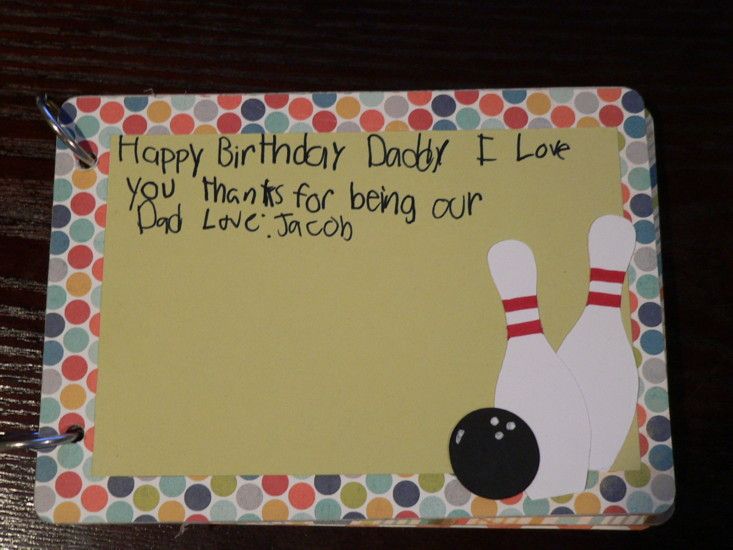 Happy Birthday Daddy I Love
you thanks for being our
Dad Love: Jacob